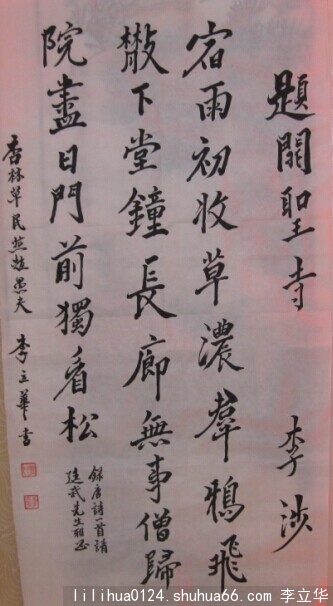 題開聖寺 李涉
宿雨初收草濃羣鴉飛
散下堂鐘長廊無事僧歸
院盡日門前獨看松
錄唐詩一首請
武先生雅正
杏林草民燕趙愚夫 李立華書
lilihua0124.shuhua66.com 李立华